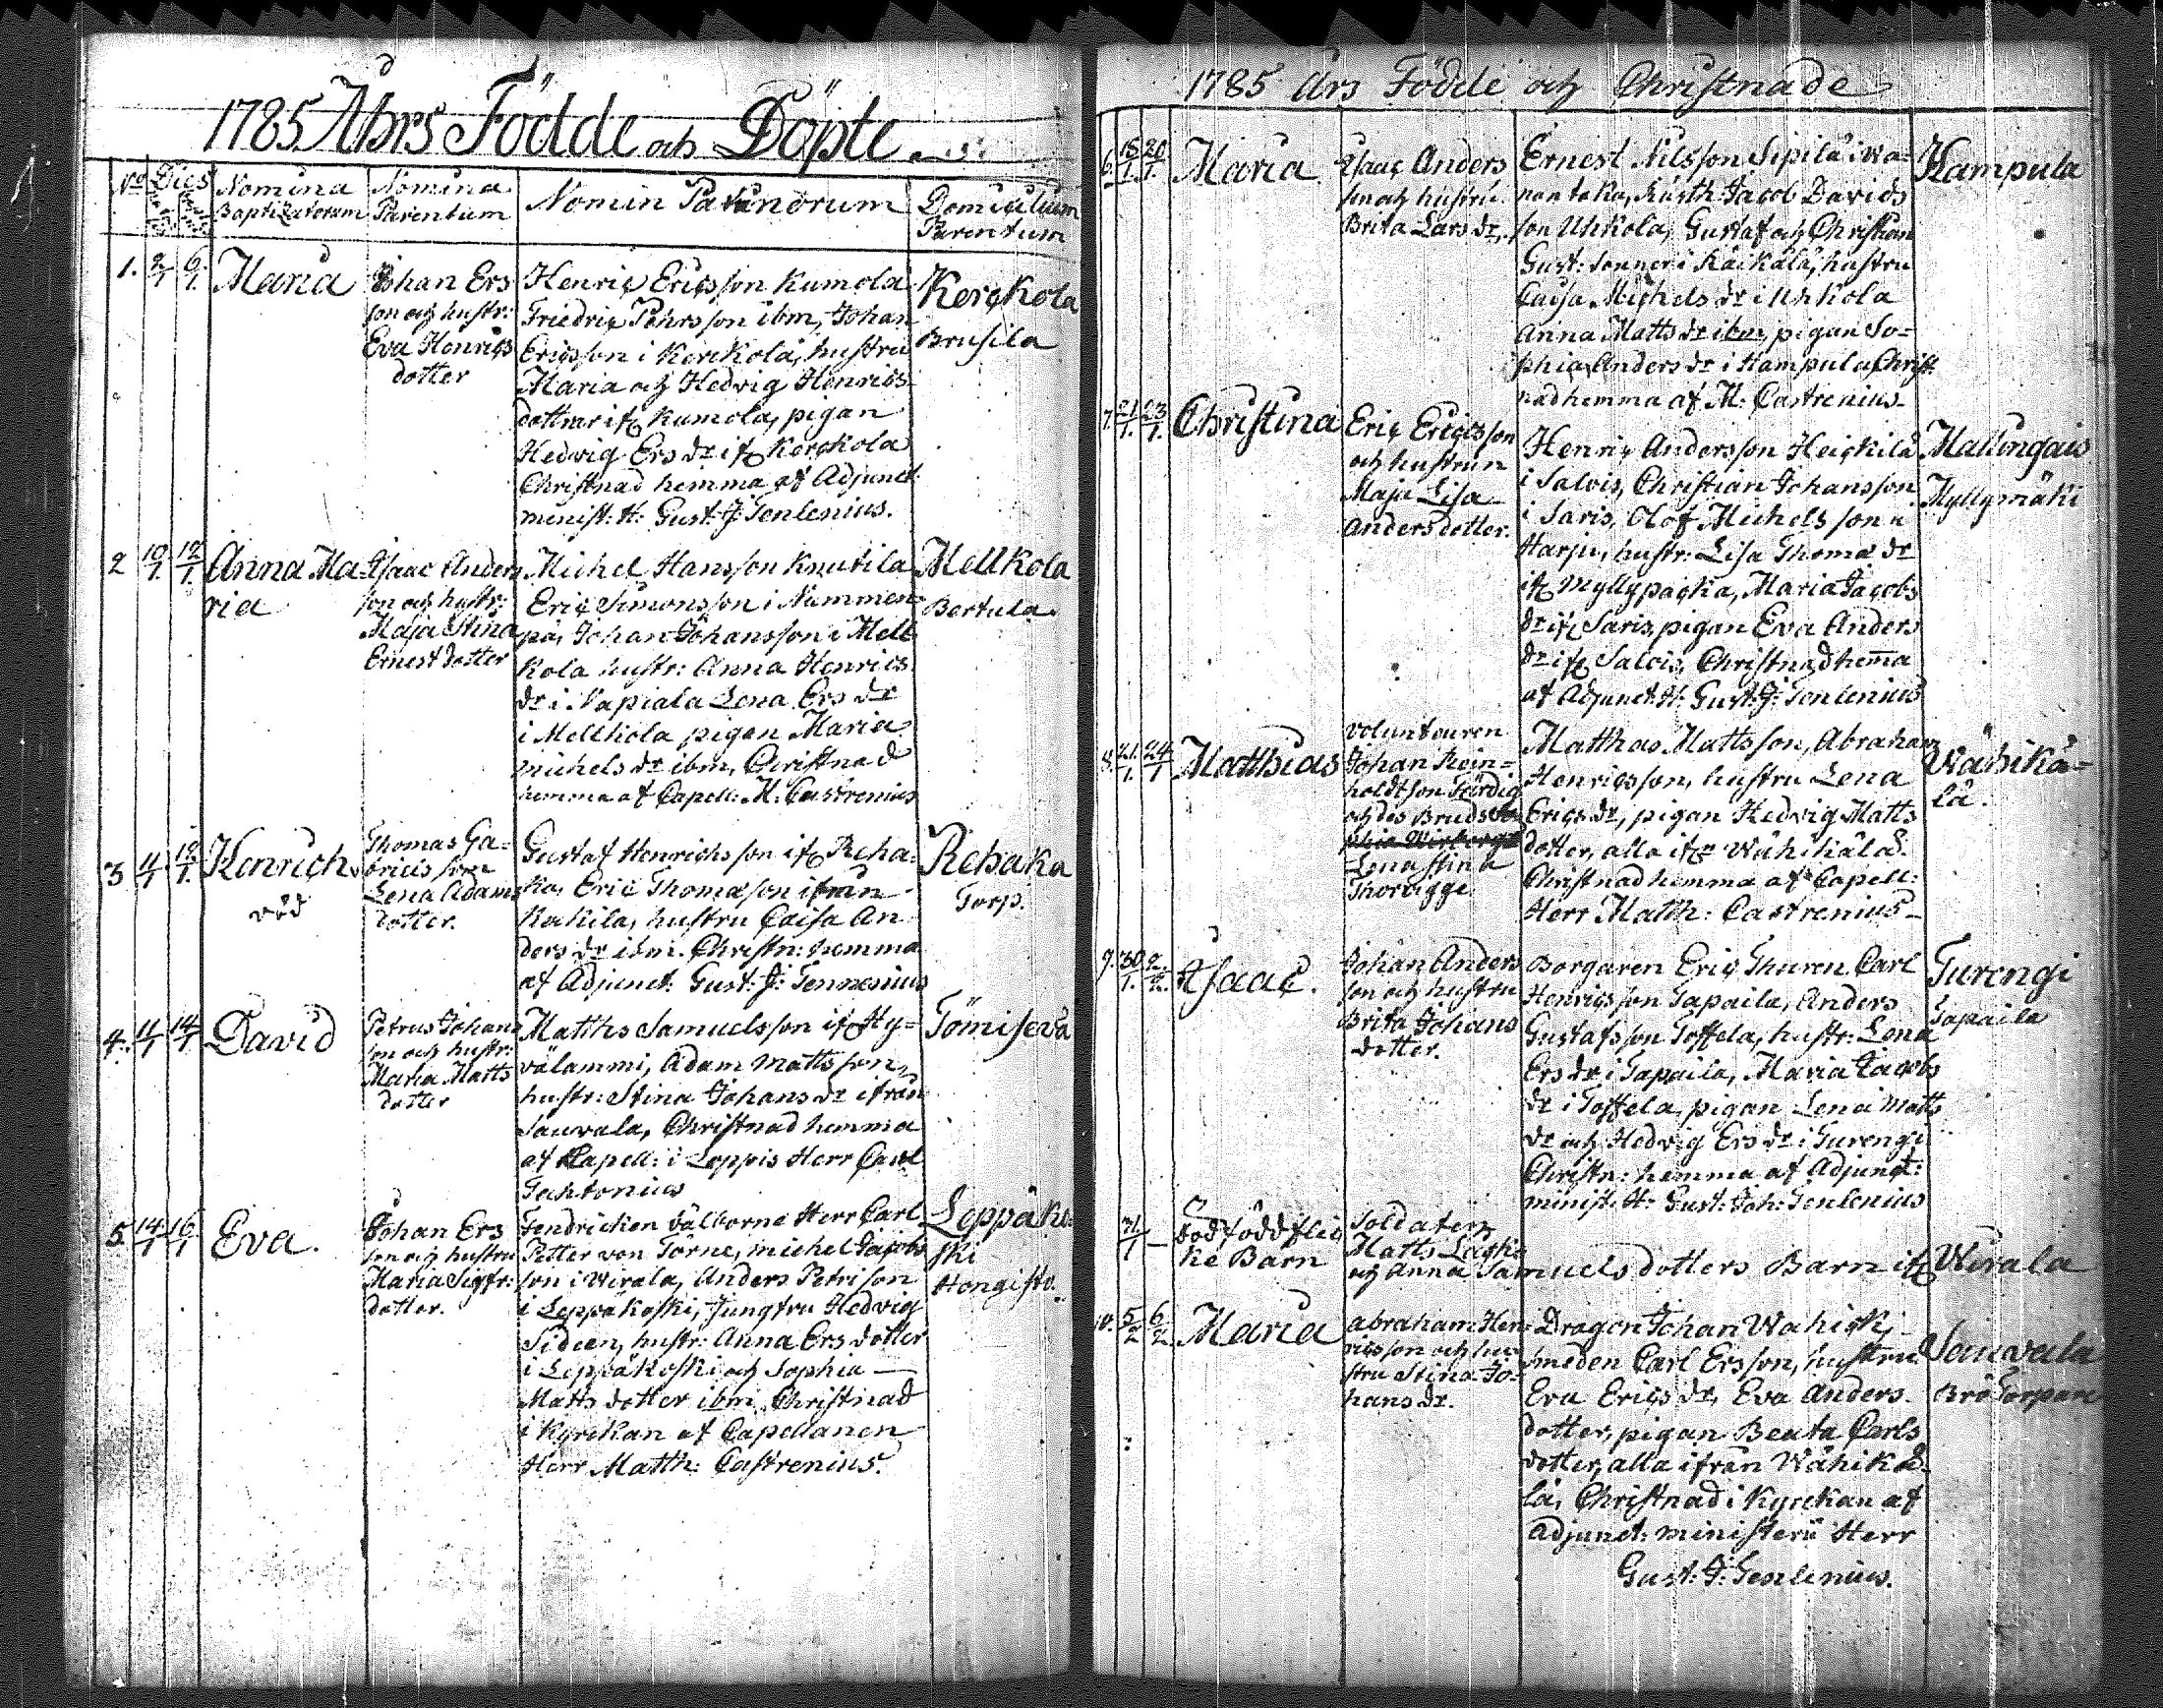 1785 Åhrs Födde och Döpte
No Dies Nomina Nomina Nomin Patrinorum Domicilium
Baptizatorum Parentum Parentum
1. 2/1 6/1 Maria Johan Ers Henric Ericsson Kumola Kerckola
son och hustr: Friedric Pehrsson ibm, Johan Brusila
Eva Henrics Ericsson i Kerckola, hustru
dotter Maria och Hedvig Henrics
dottrar ifr Kumola, pigan
Hedvig Ers dr ifr Kerckola
Christnad hemma af Adjunct:
minist: H: Gust: J: Tenlenius.
2 10/1 12/1 Anna Ma- Isaac Anders Michel Hansson Knutila Mellkola
ria son och hustr: Eric Simonsson i Nummen- Bertula.
Maja Stina pä, Johan Johansson i Mell
Ernest dotter kola hustr: Anna Henrics
dr i Napiala Lena Ers dr
i Mellkola pigan Maria
Michels dr ibm, Christnad
hemma af Capell: M. Castrenius
3 11/1 12/1 Henrich Thomas Ga- Gustaf Henrichsson ifr Reha- Rehaka
död briels son ka, Eric Thomæson ifrån Torp.
Lena Adams Kakila, hustru Caisa An
dotter. ders dr ibm. Christn: hemma
af Adjunct: Gust: J: Tennenius
4. 11/1 14/1 David Petrus Johans Matths Samuelsson ifr Hy- Tömisevä
son och hustr: välammi, Adam Mattsson,
Maria Matts hustr: Stina Johans dr ifrån
dotter Sauvala, Christnad hemma
af Capell: i Loppis Herr Carl
5 14/1 16/1 Eva. Johan Ers Fendricken Välborne Herr Carl Leppäko-
son och hustru Petter von Törne, Michel Jacobs ski
Maria Sigfr: son i Wirala, Anders Petrison Hongisto.
dotter. i Leppäkoski, Jungfru Hedvig
Sideen, hustr: Anna Ers dotter
i Leppäkoski och Sophia
Matts dotter ibm Christnad
i Kyrckan af Capellanen
Herr Matth: Castrenius.
1785 Års Födde och Christnade
6. 18/1 20/1 Maria Isaac Anders Ernest Nilsson Sipilä i Wa- Hampula
son och hustru nantaka, Rusth: Jacob Davids
Brita Lars dr, son Uhkola, Gustaf och Christian
Gust: sönner i Räikälä, hustru
Caisa Michels dr i Uhkola
Anna Matts dr ibm, pigan So-
phia Anders dr i Hampula Christ
nad hemma af M: Castrenius
7. 21/1 23/1 Christina Eric Ericsson Henric Andersson Heickilä Mallingais
och hustrun i Salois, Christian Johansson Myllymäki
Maja Lisa i Saris, Olof Michelsson i
Anders dotter. Harju, hustr: Lisa Thomæ dr
ifr Myllypacka, Maria Jacobs
dr ifr Saris, pigan Eva Anders
dr ifr Salois, Christnad hemma
af Adjunct. H: Gust: J: Tenlenius
8. 21/1 24/1 Matthias Volunteuren Matthas Mattsson, Abraham Wähikä-
Johan Rein- Henricsson, hustru Lena lä.
holdtson Färdig Erics dr, pigan Hedvig Matts
och des Brud dotter, alla ifr Wähikälä.
Lena Stina Christnad hemma af Capell:
Thorvigge Herr Math: Castrenius
9. 30/1 2/2 Isaac. Johan Anders Borgaren Eric Thuren Carl Turengi
son och hustru Henricsson Tapaila, Anders Tapaila
Brita Johans Gustafsson Toffela, hustr: Lena
dotter. Ers dr i Tapaila, Maria Jacobs
dr i Toffela, pigan Lena Matts
dr och Hedvig Ers dr i Turengi
Christn: hemma af Adjunct:
minist. H: Gust: Joh: Tenlenius
31/1 — Dödfödd flic Soldaten
ke Barn Matts Lacks
och Anna Samuels dotters Barn ifr Wirala
10. 5/2 6/2 Maria Abraham Hen- Dragon Johan Wahick, Sauvala
ricsson och hu- Smeden Carl Ersson, hustru Bro Torpare
stru Stina Jo- Eva Erics dr, Eva Anders
hans dr. dotter, pigan Beata Carls
dotter, alla ifrån Wähikä-
lä, Christnad i Kyrckan af
Adjunct: ministerii Herr
Gust: J: Tenlenius.